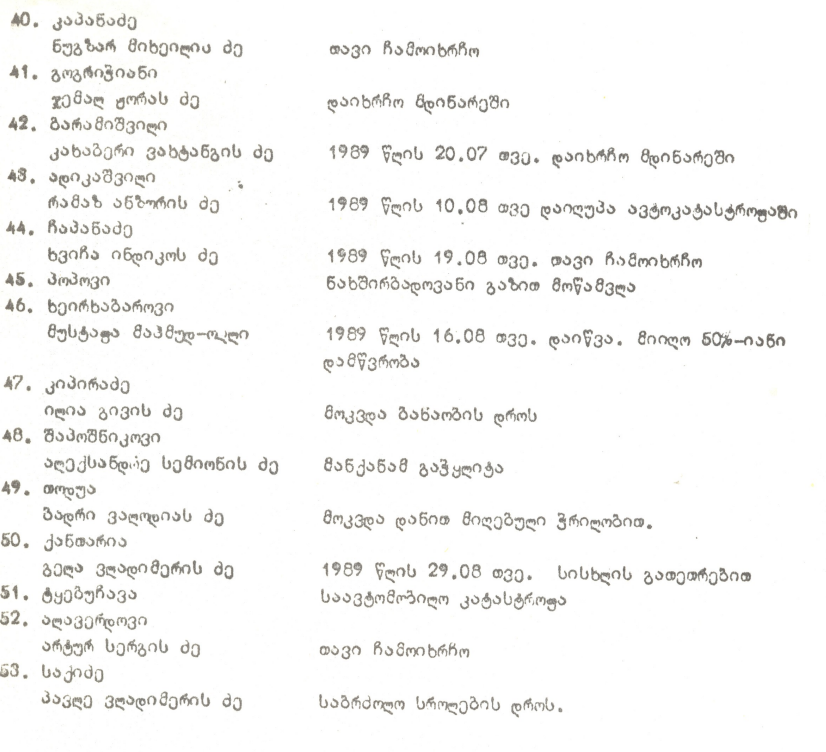 40. კაპანაძე
ნუგზარ მიხეილის ძე თავი ჩამოიხრჩო
41. გოგრიჭიანი
ჯემალ ჟორას ძე დაიხრჩო მდინარეში
42. ბარამიშვილი
კახაბერი ვახტანგის ძე 1989 წლის 20.07 თვე. დაიხრჩო მდინარეში
43. ადიკაშვილი
რამაზ ანზორის ძე 1989 წლის 10.08 თვე დაიღუპა ავტოკატასტროფაში
44. ჩაპანაძე
ხვიჩა ინდიკოს ძე 1989 წლის 19.08 თვე. თავი ჩამოიხრჩო
45. პოპოვი ნახშირბადოვანი გაზით მოწამვლა
46. ხეირხაბაროვი
მუსტაფა მაჰმუდ-ოღლი 1989 წლის 16.08 თვე. დაიწვა. მიიღო 50%-იანი
დამწვრობა
47. კიპირაძე
ილია გივის ძე მოკვდა ბანაობის დროს
48. შაპოშნიკოვი
ალექსანდრე სემიონის ძე მანქანამ გაჭყლიტა
49. თოდუა
ბადრი ვალოდიას ძე მოკვდა დანით მიღებული ჭრილობით.
50. ქანთარია
გელა ვლადიმერის ძე 1989 წლის 29.08 თვე. სისხლის გათეთრებით
51. ტყებუჩავა საავტომობილო კატასტროფა
52. ალავერდოვი
არტურ სერგის ძე თავი ჩამოიხრჩო
53. საქიძე
პავლე ვლადიმერის ძე საბრძოლო სროლების დროს.